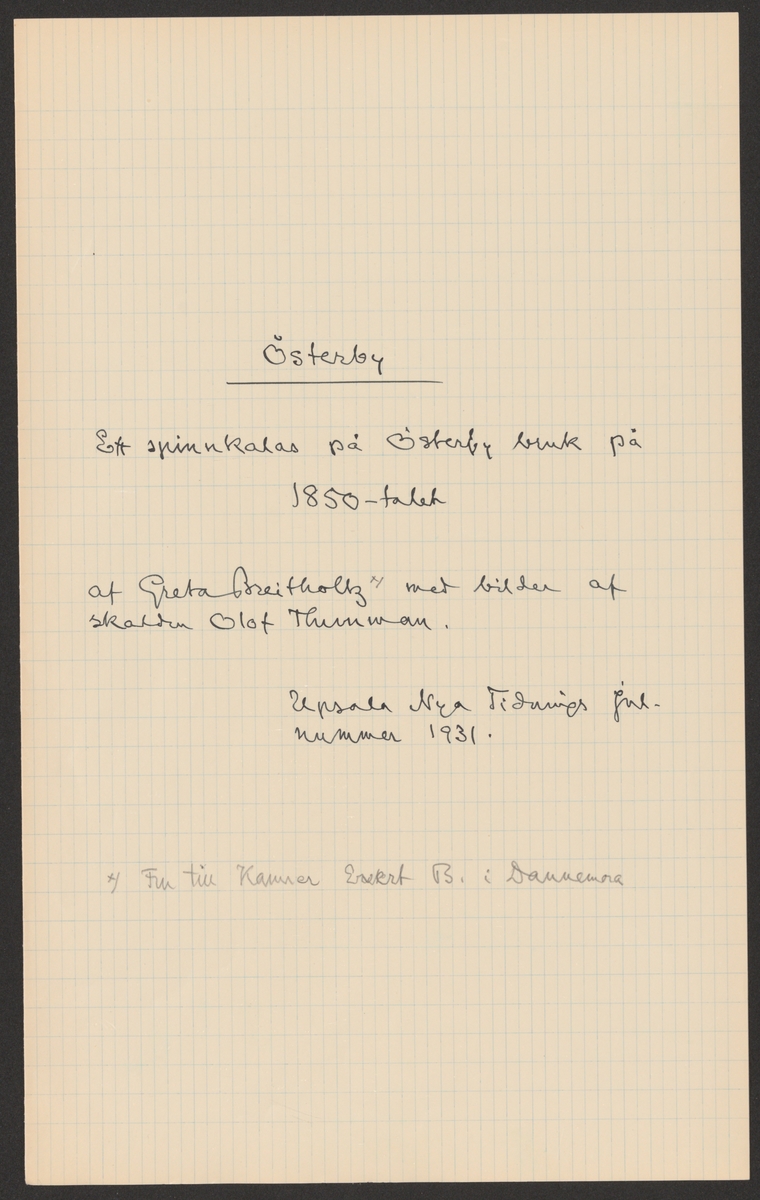 Österby
Ett spinnkalas på Österby bruk på
1850-talet
af Greta Breitholtz x/ med bilder af
skalden Olof Thunman.
Upsala Nya Tidnings Jul-
nummer 1931.
x/ Fru till Kamrer B. i Dannemora